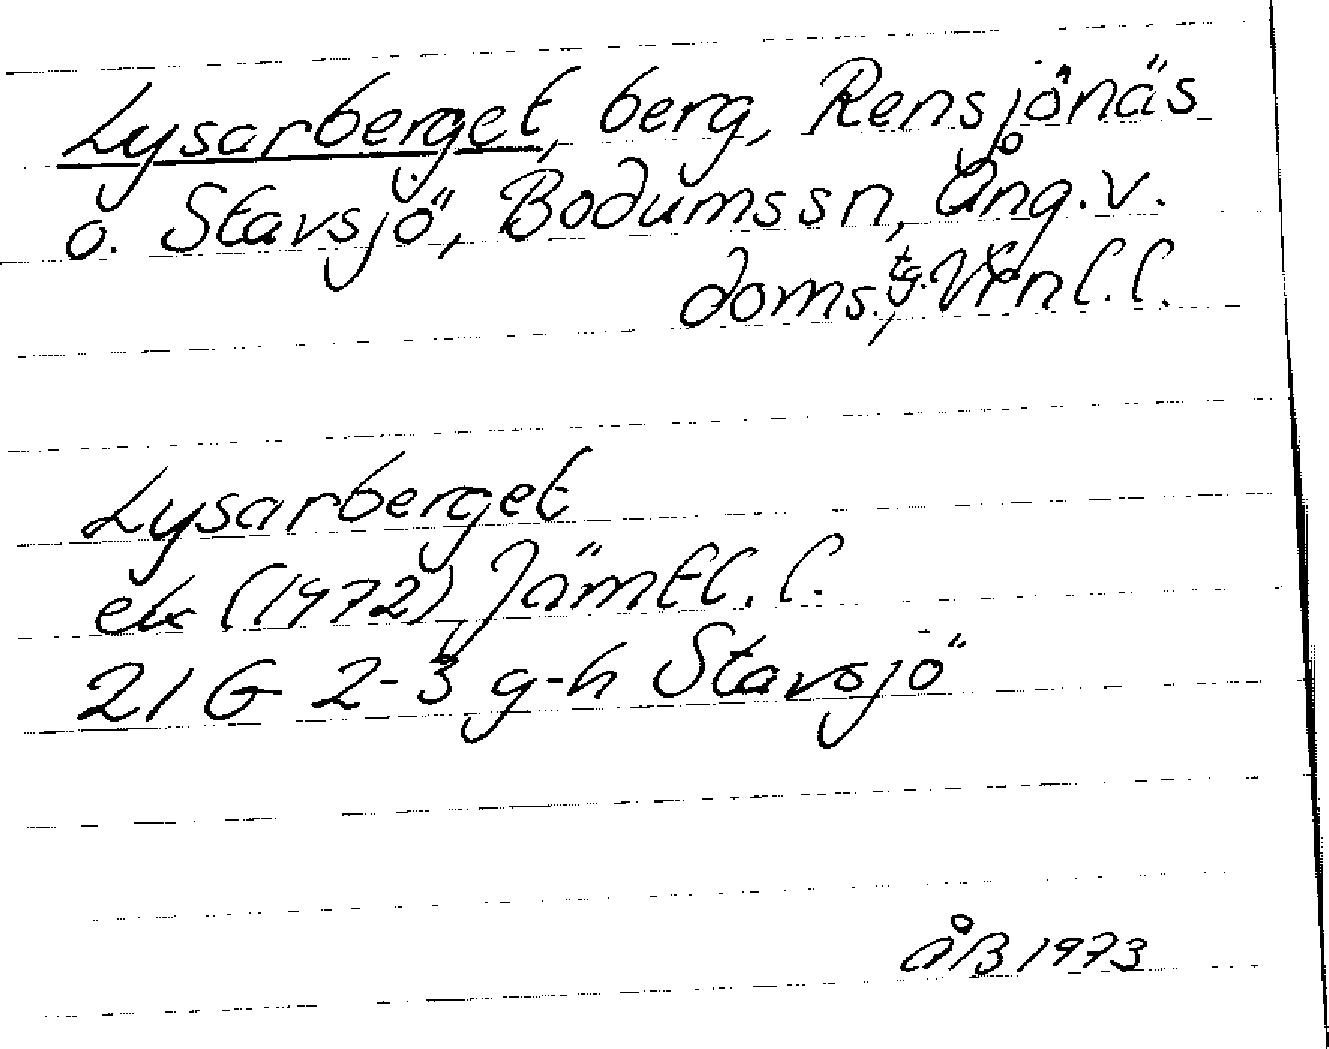 Lysarberget, berg, Rensjönäs
o. Stavsjö, Bodumssn, Ång.v.
doms.tg. Vrnl.l.
Lysarberget
ek (1972), Jämtl.l.
21 G 2-3 g-h Stavsjö
ÅB 1973